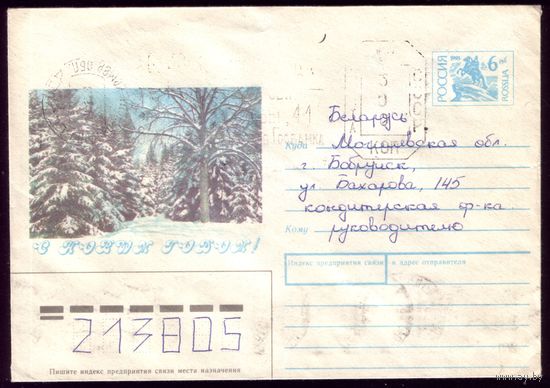 РОССИЯ
1993
6 к.
ROSSIJA
41
Беларусь
Куда Могилевская обл.
г. Бобруйск,
ул. Бахарова, 145
кондитерская ф-ка
Кому руководителю
С НОВЫМ ГОДОМ!
Индекс предприятия связи и адрес отправителя
213805
Пишите индекс предприятия связи места назначения
www.ay.by